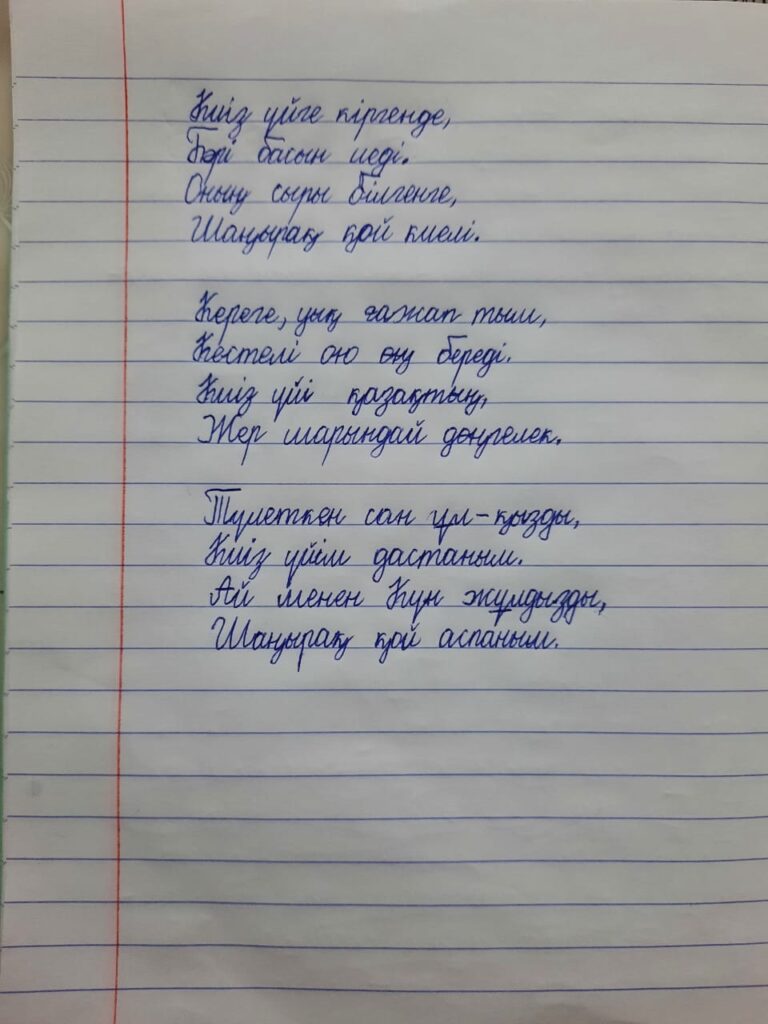 Киіз үйге кіргенде,
Бәрі басын иеді.
Оның сыры білгенге,
Шаңырақ қой киелі.
Кереге, уық ғажап тым,
Кестелі ою өң береді.
Киіз үйі қазақтың,
Жер шарындай дөңгелек.
Түлеткен сан ұл-қызды,
Киіз үйім дастаным.
Ай менен Күн жұлдызды,
Шаңырақ қой аспаным.